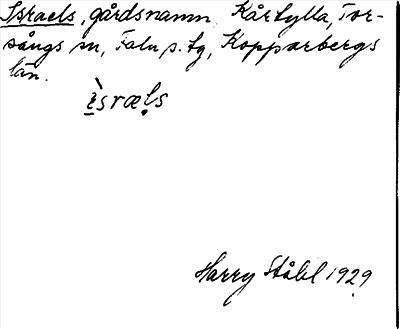 Israels, gårdsnamn Kårtylla, Tor-
sångs sn, Falu s. tg, Kopparbergs
län.
ìsræls
Harry Ståhl 1929